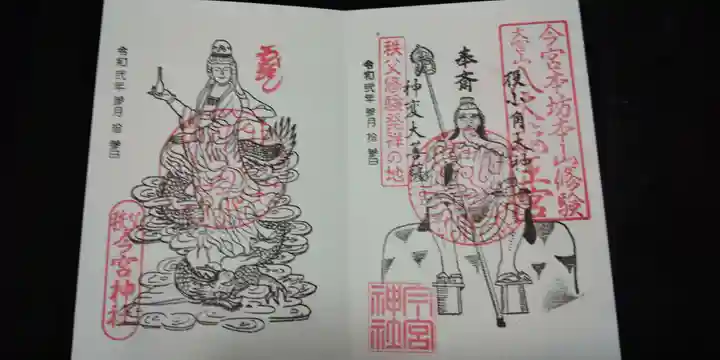 今宮本坊本山修験
大宮山
役小角大神
奉斎
神変大菩薩
秩父修験発祥の地
令和弐年 参月 拾 参日
今宮
神社
令和弐年 参月 拾 参日
秩父
今宮神社